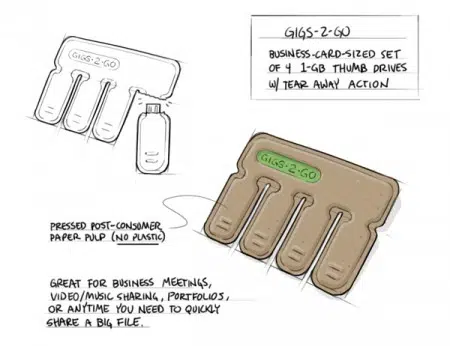 GIGS•2•GO
GIGS-2-GO
BUSINESS-CARD-SIZED SET
OF 4 1-GB THUMB DRIVES
W/ TEAR AWAY ACTION
GIGS•2•GO
PRESSED POST-CONSUMER
PAPER PULP (NO PLASTIC)
GREAT FOR BUSINESS MEETINGS,
VIDEO/MUSIC SHARING, PORTFOLIOS,
OR ANYTIME YOU NEED TO QUICKLY
SHARE A BIG FILE.